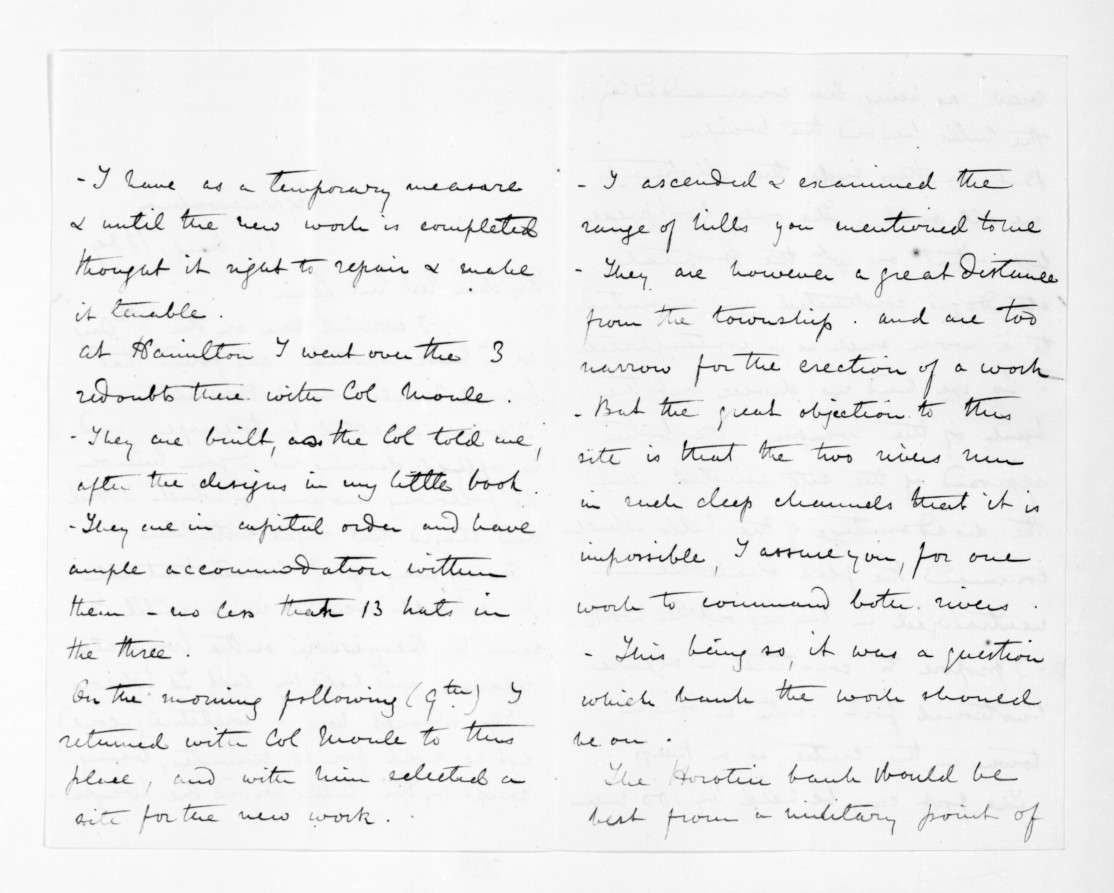 - I have as a temporary measure
& until the new work is completed
thought it right to repair & make
it tenable.
At Hamilton I went over the 3
redoubts there with Col Moule.
- They are built, as the Col told me,
after the designs in my little book.
- They are in capital order and have
ample accommodation within
them - no less than 13 huts in
the three.
On the morning following (9th) I
returned with Col Moule to this
place, and with him selected a
site for the new work.
- I ascended & examined the
range of hills you mentioned to me
- They are however a great distance
from the township. and are too
narrow for the erection of a work
- But the great objection to this
site is that the two rivers run
in such deep channels that it is
impossible, I assure you, for one
work to command both rivers.
- This being so, it was a question
which bank the work should
be on.
The Horotiu bank would be
best from a military point of